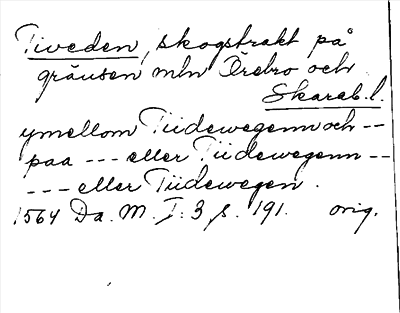 Tiveden, skogstrakt på
gränsen mln Örebro och
Skarab. l.
ymellom Tiidewegenn och --
paa --- eller Tiidewegenn --
--- eller Tiidewegen.
1564 Da. M. I: 3 s. 191. orig.